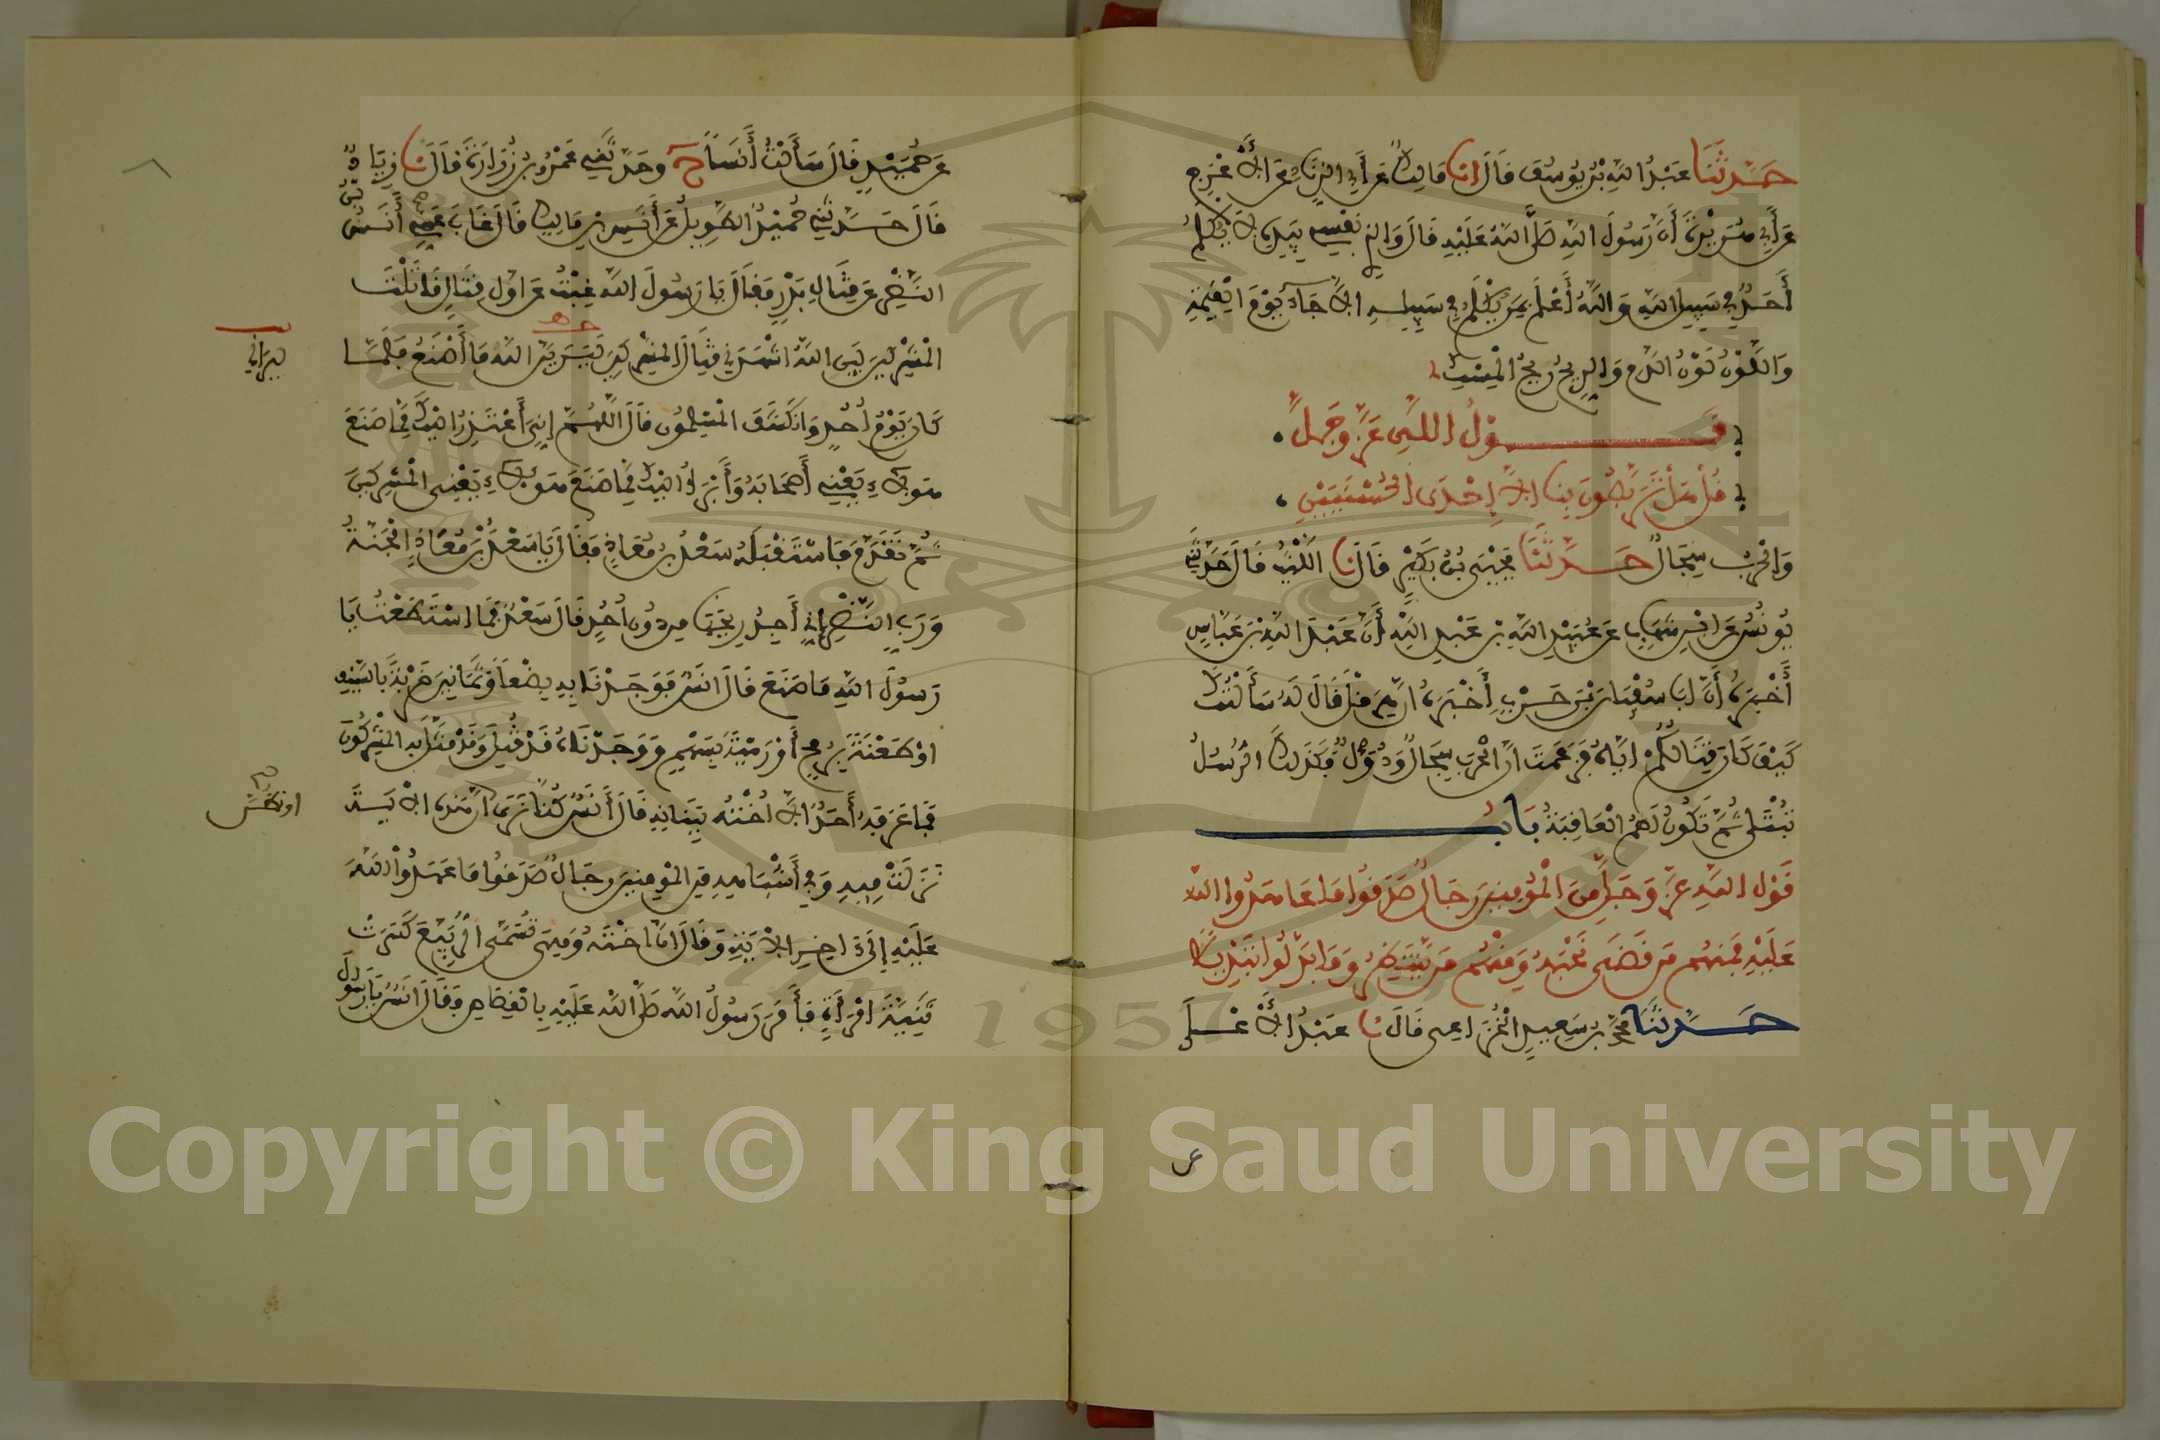 حَدَّثَنَا عَبْدُ اللهِ بْنُ يُوسُفَ قَالَ انا مَالِكٌ عَن أَبِي الزِّنَادِ عَنِ الأَعْرَجِ
عَن أَبِي هُرَيْرَةَ أَنَّ رَسُولَ اللهِ صَلَّى اللهُ عَلَيْهِ قَالَ وَالذِي نَفْسِي بِيَدِهِ لَا يُكْلَمُ
أَحَدٌ فِي سَبِيلِ اللهِ وَاللهُ أَعْلَمُ بِمَن يُكْلَمُ فِي سَبِيلِهِ الَّا جَاءَ يَوْمَ الْقِيَمَةِ
وَاللَّوْنُ لَوْنُ الدَّمِ وَالرِّيحُ رِيحُ الْمِسْكِ
قَوْلُ اللهِ عَزَّ وَجَلَّ
قُلْ هَلْ تَرَبَّصُونَ بِنَا الَّا إِحْدَى الْحُسْنَيَيْنِ
وَالْحَرْبُ سِجَالٌ حَدَّثَنَا يَحْيَى بْنُ بُكَيْرٍ قَالَ نا اللَّيْثُ قَالَ حَدَّثَنِي
يُونُسُ عَنِ ابْنِ شِهَابٍ عَن عُبَيْدِ اللهِ بْنِ عَبْدِ اللهِ أَنَّ عَبْدَ اللهِ بْنَ عَبَّاسٍ
أَخْبَرَهُ أَنَّ أَبَا سُفْيَانَ بْنَ حَرْبٍ أَخْبَرَهُ أَنَّ هِرَقْلَ قَالَ لَهُ سَأَلْتُكَ
كَيْفَ كَانَ قِتَالُكُمْ إِيَّاهُ فَزَعَمْتَ أَنَّ الْحَرْبَ سِجَالٌ وَدُوَلٌ فَكَذَلِكَ الرُّسُلُ
تُبْتَلَى ثُمَّ تَكُونُ لَهُمُ الْعَاقِبَةُ بَابُ
قَوْلِ اللهِ عَزَّ وَجَلَّ مِنَ الْمُؤْمِنِينَ رِجَالٌ صَدَقُوا مَا عَاهَدُوا اللهَ
عَلَيْهِ فَمِنْهُم مَن قَضَى نَحْبَهُ وَمِنْهُم مَن يَنتَظِرُ وَمَا بَدَّلُوا تَبْدِيلًا
حَدَّثَنَا مُحَمَّدُ بْنُ سَعِيدٍ الْخُزَاعِي قَالَ نا عَبْدُ الأَعْلَى
عَن
عَن حُمَيْدٍ قَالَ سَأَلْتُ أَنَسًا ح وحَدَّثَنِي عَمْرُو بْنُ زُرَارَةَ قَالَ نا زِيَادٌ
قَالَ حَدَّثَنِي حُمَيْدٌ الطَّوِيلُ عَن أَنَسِ بْنِ مَالِكٍ قَالَ غَابَ عَمِّي أَنَسُ بْنُ
النَّضْرِ عَن قِتَالِ بَدْرٍ فَقَالَ يَا رَسُولَ اللهِ غِبْتُ عَن اوَّلِ قِتَالٍ قَاتَلْتَ
الْمُشْرِكِينَ لَئِنِ اللهُ اشْهَدَنِي قِتَالَ الْمُشْرِكِينَ لَيَرَيَنَّ اللهُ مَا أَصْنَعُ فَلَمَّا
لَيَرَانِي
كَانَ يَوْمُ أُحُدٍ وَانكَشَفَ الْمُسْلِمُونَ قَالَ اللَّهُمَّ إِنِّي أَعْتَذِرُ الَيْكَ مِمَّا صَنَعَ
هَؤُلَاءِ يَعْنِي أَصْحَابَهُ وَأَبْرَأُ الَيْكَ مِمَّا صَنَعَ هَؤُلَاءِ يَعْنِي الْمُشْرِكِينَ
ثُمَّ تَقَدَّمَ فَاسْتَقْبَلَهُ سَعْدُ بْنُ مُعَاذٍ فَقَالَ يَا سَعْدُ بْنَ مُعَاذٍ الْجَنَّةُ
وَرَبِّ النَّضْرِ إِنِّي أَجِدُ رِيحَهَا مِن دُونِ أُحُدٍ قَالَ سَعْدٌ فَمَا اسْتَطَعْتُ يَا
رَسُولَ اللهِ مَا صَنَعَ قَالَ انَسٌ فَوَجَدْنَا بِهِ بِضْعًا وَثَمَانِينَ ضَرْبَةً بِالسَّيْفِ
اوْ طَعْنَةً بِرُمْحٍ أَوْ رَمْيَةً بِسَهْمٍ وَوَجَدْنَاهُ قَدْ قُتِلَ وَقَدْ مَثَّلَ بِهِ الْمُشْرِكُونَ
فَمَا عَرَفَهُ أَحَدٌ الَّا اُخْتُهُ بِبَنَانِهِ قَالَ أَنَسٌ كُنَّا نَرَى أَنَّ هَذِهِ الْآيَةَ
او نظن
نَزَلَتْ فِيهِ وَفِي أَشْبَاهِهِ مِنَ الْمُؤْمِنِينَ رِجَالٌ صَدَقُوا مَا عَاهَدُوا اللهَ
عَلَيْهِ إِلَى ءَاخِرِ الْآيَةِ وَقَالَ انَّ اخْتَهُ وَهِيَ تُسَمَّى الرُّبَيِّعَ كَسَرَتْ
ثَنِيَّةَ امْرَأَةٍ فَأَمَرَ رَسُولُ اللهِ صَلَّى اللهُ عَلَيْهِ بِالْقِصَاصِ فَقَالَ انَسٌ يَا رَسُولَ
Copyright © King Saud University
1957